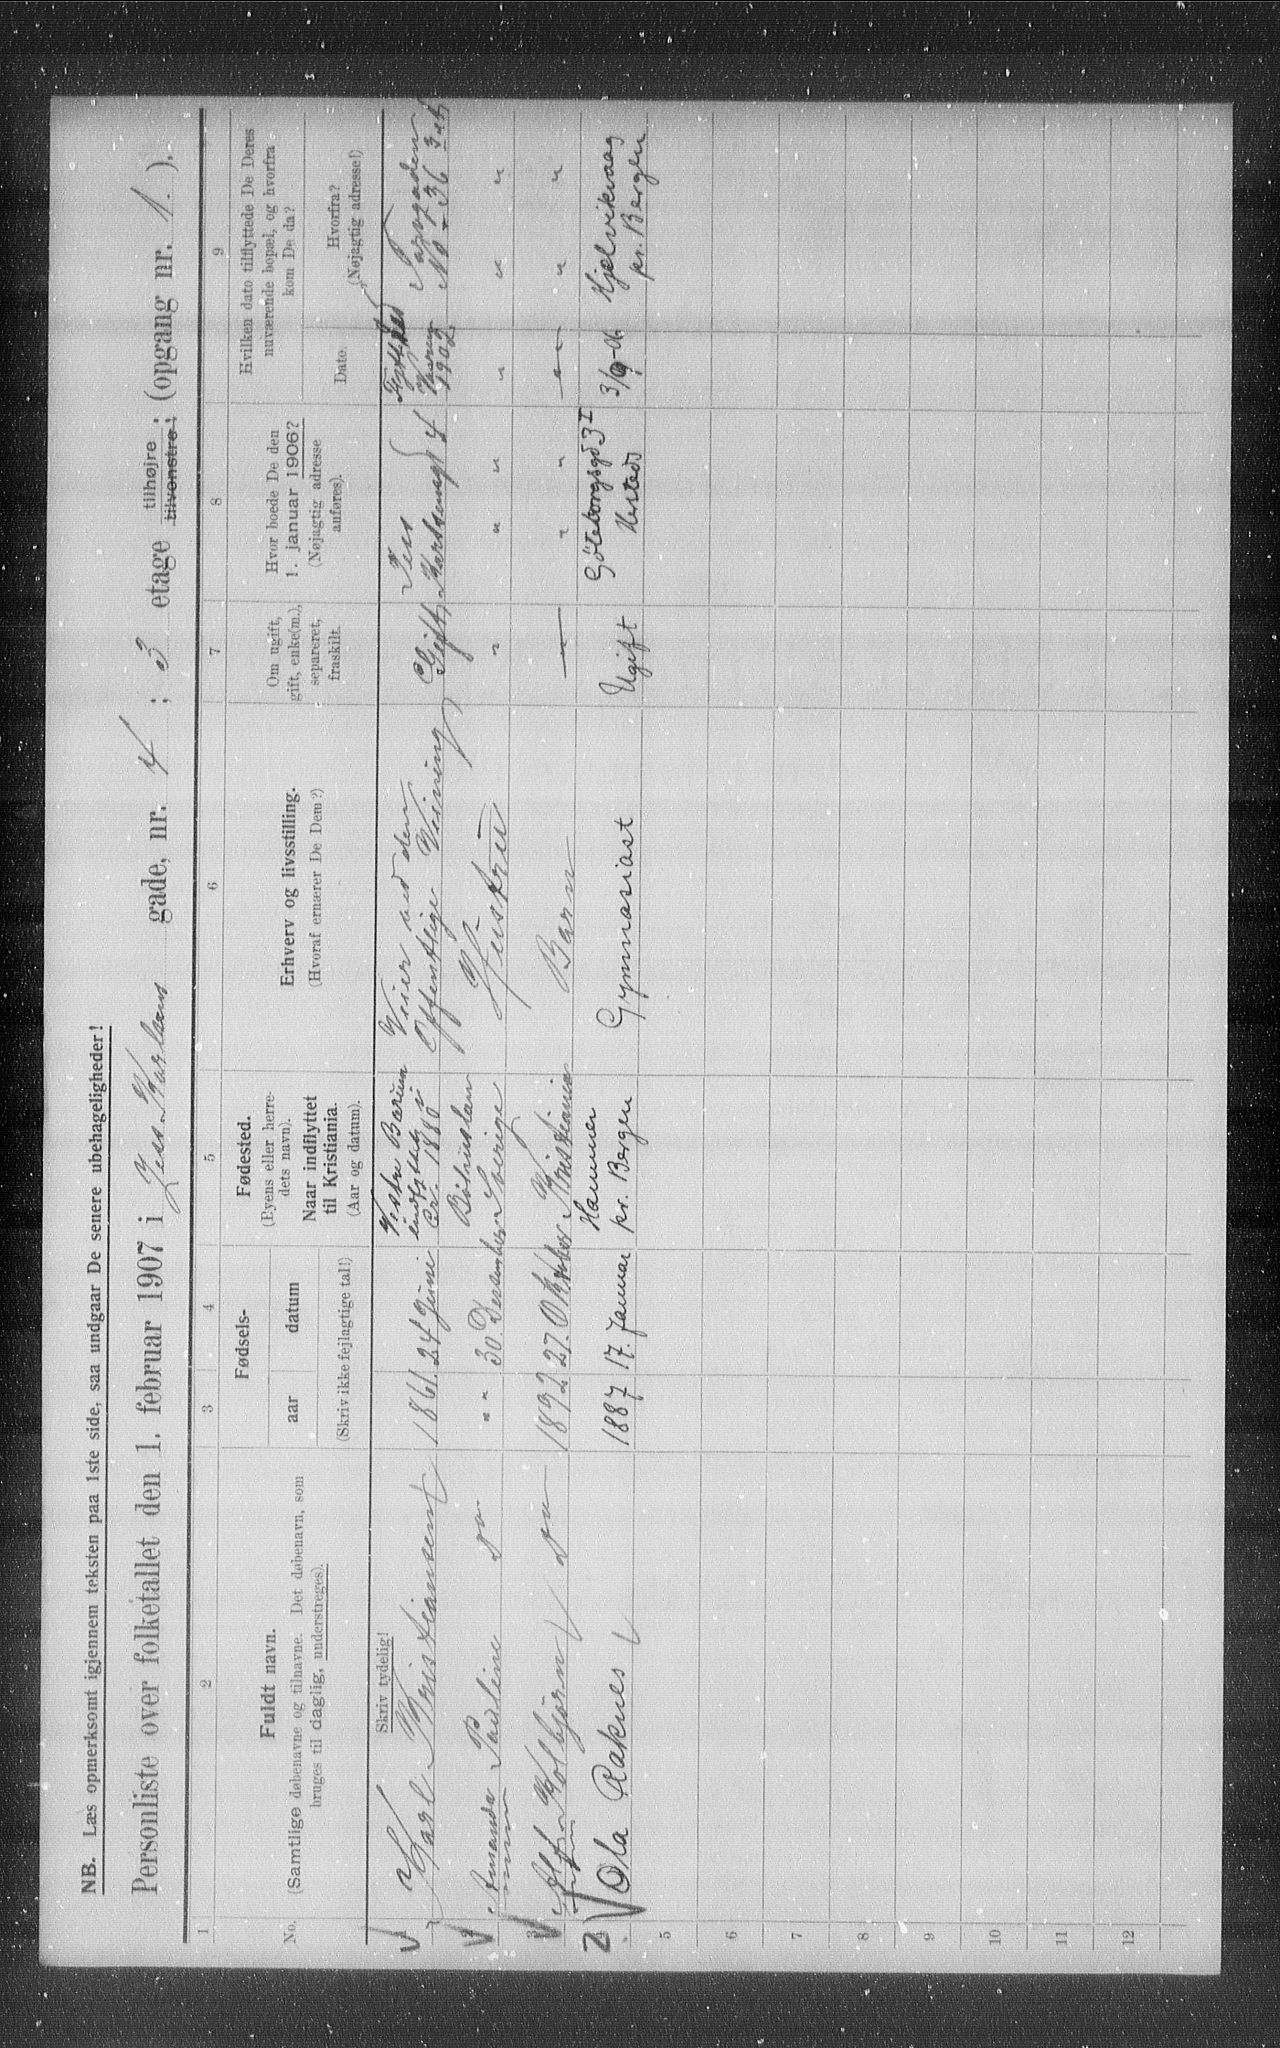 NB. Læs opmerksomt igjennem teksten paa 1ste side, saa undgaar De senere ubehageligheder!
Personliste over folketallet den 1. februar 1907 i Jess Karlsens gade, nr. 4 ; 3 etage tilhøjre ; tilvenstre ; (opgang nr. 1. ).
1 2 3 4 5 6 7 8 9
No.
Fuldt navn.
(Samtlige døbenavne og tilnavne. Det døbenavn, som
bruges til daglig, understreges).
Fødsels-
aar datum
(Skriv ikke fejlagtige tal!)
Fødested.
(Byens eller herre-
dets navn).
Naar indflyttet
til Kristiania.
(Aar og datum).
Erhverv og livsstilling.
(Hvoraf ernærer De Dem?)
Om ugift,
gift, enke(m.),
separeret,
fraskilt.
Hvor boede De den
1. januar 1906?
(Nøjagtig adresse
anføres).
Hvilken dato tilflyttede De Deres
nuværende bopæl, og hvorfra
kom De da?
Dato.
Hvorfra?
(Nøjagtig adresse!)
Skriv tydelig!
Karl Kristiansen 1861. 24 Juni Vestre Bærum indflyttet i 1880 Veier ved den Offentlige Veining Gift Jess Karlsensgd 4 1902 No 36
2 Amanda Pauline do " " 30. Desember Sverige Hustru " " " " " "
3 Alf Kolbjørn do 1892 27. Oktober Kristiania Barn " " " " " "
2 Ola Raknes 1887 17. Januar Hammer pr. Bergen Gymnasiast Ugift Göteborgsgd 3 I Hjelvikvaag pr. Bergen
5
6
7
8
9
10
11
12